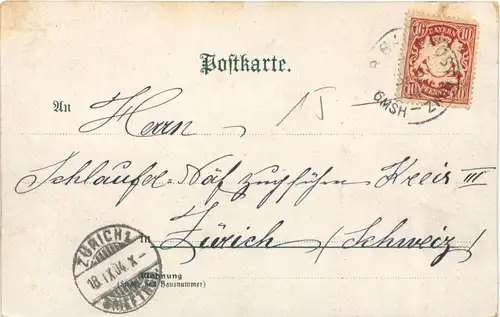 10 BAYERN 10
10 PFENNIG 10
Postkarte.
6MSH
An
Herrn
Schlaufer-Näf Zugführer Kreis III
in Zürich (Schweiz)
ZÜRICH 1
18.IX.04.X-
BRIEFTR.
Wohnung
(Straße und Hausnummer)